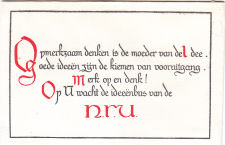 Opmerkzaam denken is de moeder van de Idee.
Goede ideeën zijn de kiemen van vooruitgang.
Merk op en denk!
Op U wacht de ideeënbus van de
N.R.U.